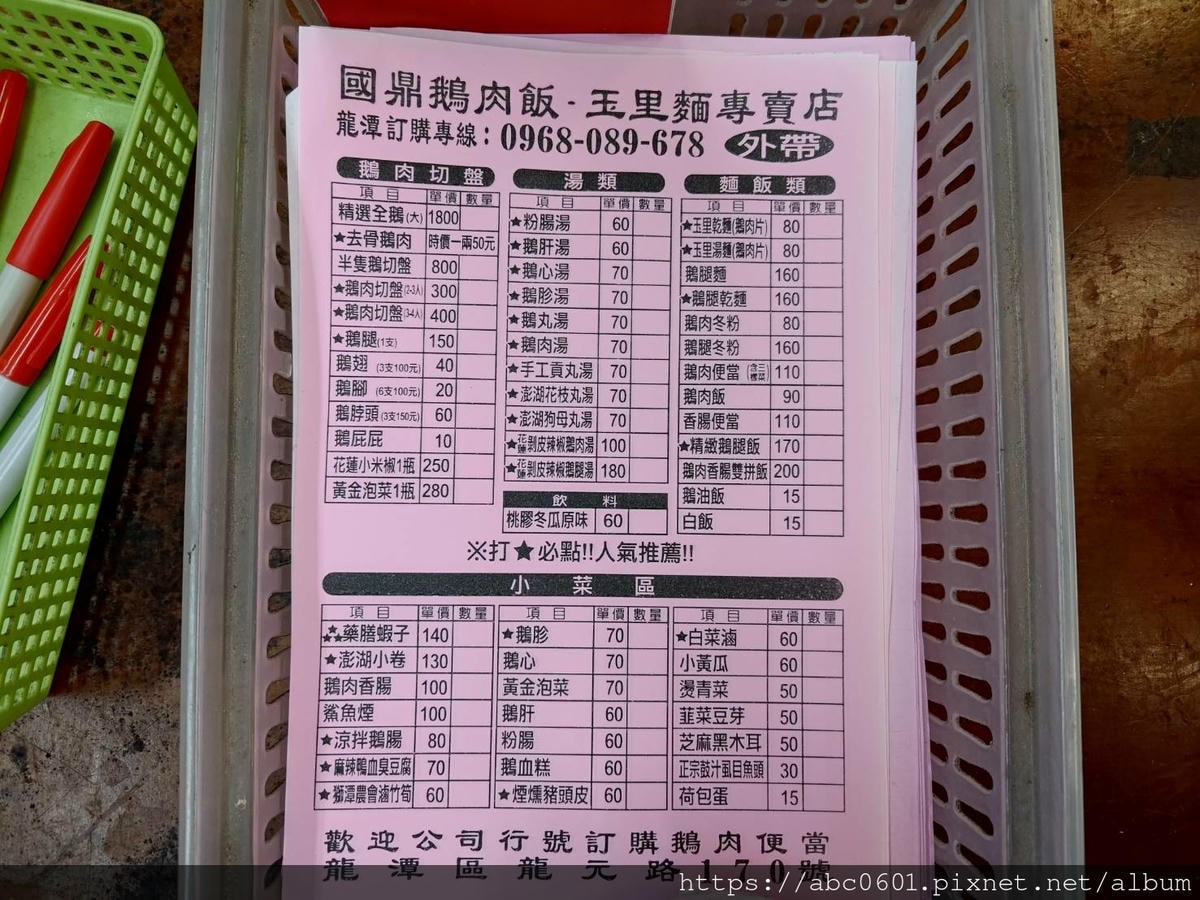 國鼎鵝肉飯·玉里麵專賣店
龍潭訂購專線：0968-089-678 外帶
鵝肉切盤
項目 單價 數量
精選全鵝(大) 1800
★去骨鵝肉 時價一兩50元
半隻鵝切盤 800
★鵝肉切盤(2-3人) 300
★鵝肉切盤(3-4人) 400
★鵝腿(1支) 150
鵝翅(3支100元) 40
鵝腳(6支100元) 20
鵝脖頭(3支150元) 60
鵝屁屁 10
花蓮小米椒1瓶 250
黃金泡菜1瓶 280
湯類
項目 單價 數量
★粉腸湯 60
★鵝肝湯 60
★鵝心湯 70
★鵝胗湯 70
★鵝丸湯 70
★鵝肉湯 70
★手工貢丸湯 70
★澎湖花枝丸湯 70
★澎湖狗母丸湯 70
★花蓮剝皮辣椒鵝肉湯 100
★花蓮剝皮辣椒鵝腿湯 180
飲料
桃膠冬瓜原味 60
麵飯類
項目 單價 數量
★玉里乾麵(鵝肉片) 80
★玉里湯麵(鵝肉片) 80
鵝腿麵 160
★鵝腿乾麵 160
鵝肉冬粉 80
鵝腿冬粉 160
鵝肉便當(含三樣菜) 110
鵝肉飯 90
香腸便當 110
★精緻鵝腿飯 170
鵝肉香腸雙拼飯 200
鵝油飯 15
白飯 15
※打★必點!!人氣推薦!!
小菜區
項目 單價 數量
★★★藥膳蝦子 140
★澎湖小卷 130
鵝肉香腸 100
鯊魚煙 100
★涼拌鵝腸 80
★麻辣鴨血臭豆腐 70
★獅潭農會滷竹筍 60
項目 單價 數量
★鵝胗 70
鵝心 70
黃金泡菜 70
鵝肝 60
粉腸 60
鵝血糕 60
★煙燻豬頭皮 60
項目 單價 數量
★白菜滷 60
小黃瓜 60
燙青菜 50
韮菜豆芽 50
芝麻黑木耳 50
正宗豉汁虱目魚頭 30
荷包蛋 15
歡迎公司行號訂購鵝肉便當
龍潭區龍元路170號
https://abc0601.pixnet.net/album